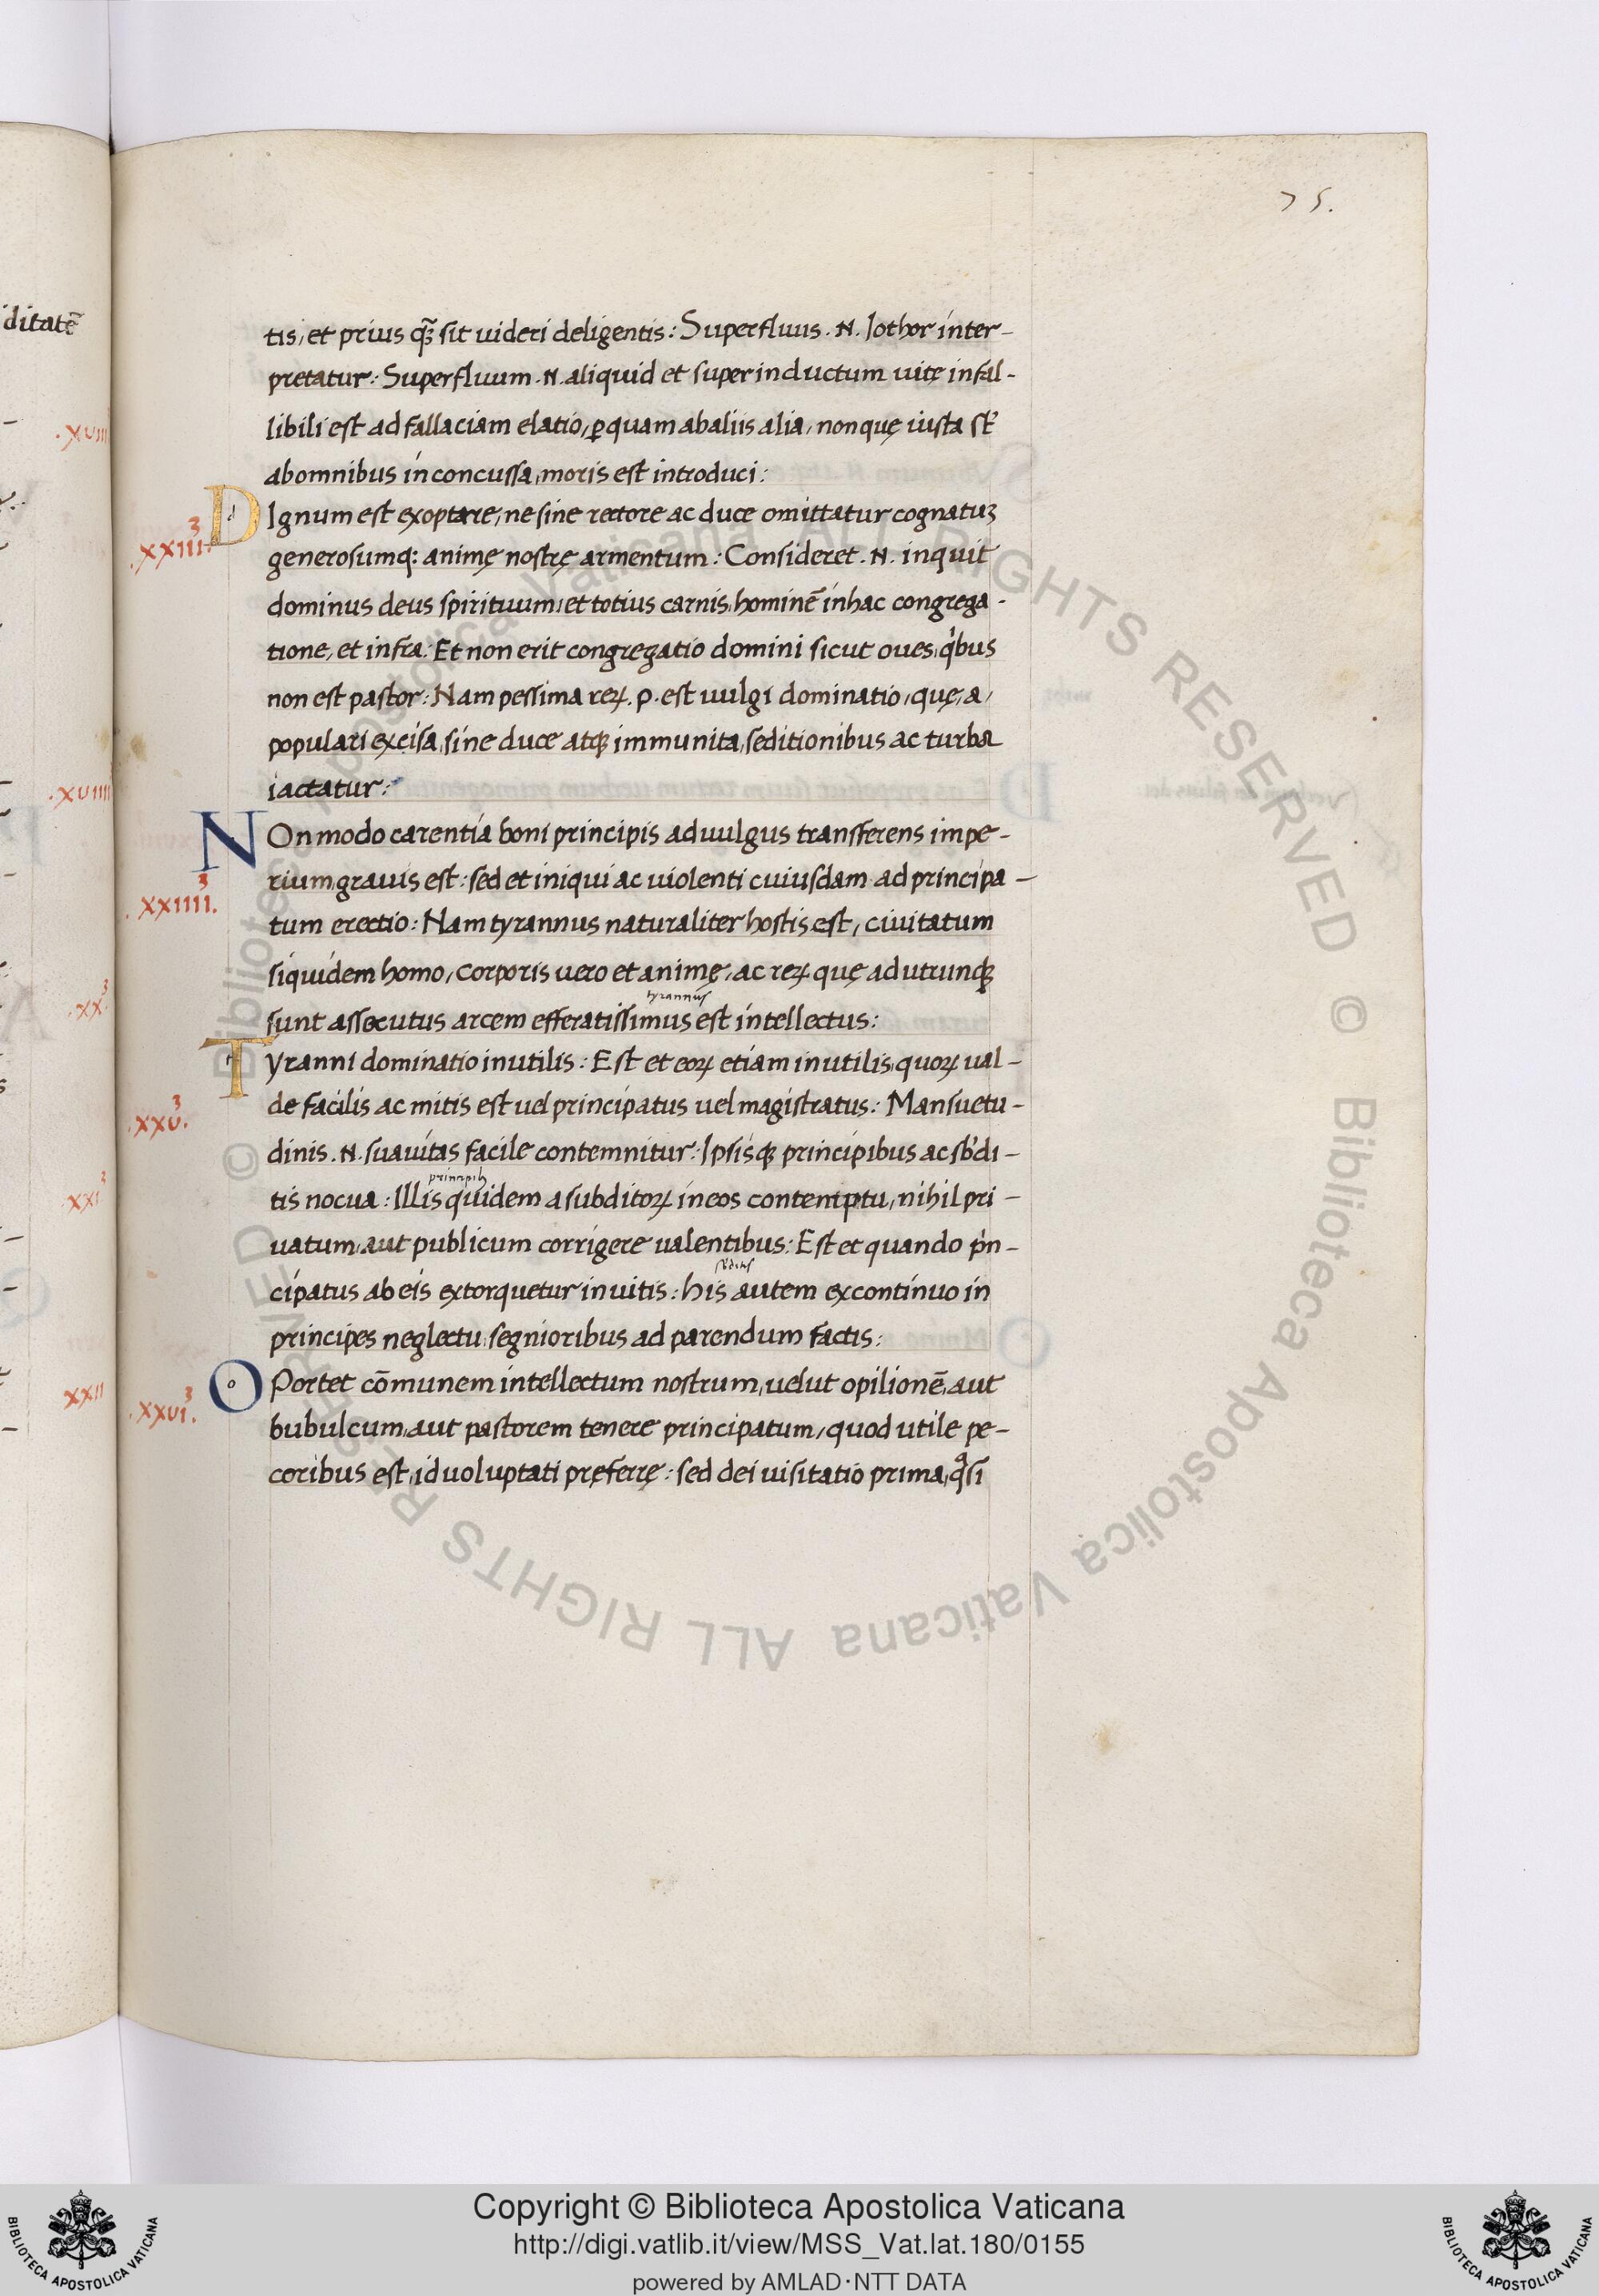 75.
iditatẽ
tis, et prius qꝫ sit uideri deligentis: Superfluus .N. Iothor inter-
pretatur: Superfluum .N. aliquid et superinductum uitę infal-
libili est ad fallaciam elatio, ꝑ quam ab aliis alia, non quę iusta st̃
ab omnibus inconcussa, moris est introduci:
.XXIII.
DIgnum est exoptare, ne sine rectore ac duce omittatur cognatuꝫ
generosumq: animę nostrę armentum: Consideret .N. inquit
dominus deus spirituum, et totius carnis, hominẽ in hac congrega-
tione, et infra: Et non erit congregatio domini sicut oues, qibus
non est pastor: Nam pessima reꝝ .P. est uulgi dominatio, quę, a,
populari excisa, sine duce atqꝫ immunita, seditionibus ac turba
iactatur:
.XXIIII.
NOn modo carentia boni principis ad uulgus transferens impe-
rium, grauis est: sed et iniqui ac uiolenti cuiusdam ad principa-
tum erectio: Nam tyrannus naturaliter hostis est, ciuitatum
siquidem homo, corporis uero et animę, ac reꝝ quę ad utrunqꝫ
tyrannus
sunt assecutus arcem efferatissimus est intellectus:
.XXV.
Tyranni dominatio inutilis: Est et eoꝝ etiam inutilis, quoꝝ ual-
de facilis ac mitis est uel principatus uel magistratus: Mansuetu-
dinis .N. suauitas facile contemnitur: Ipsisqꝫ principibus ac sb'di-
principib
tis nocua: Illis quidem a subditoꝝ in eos contemptu, nihil pri-
uatum, aut publicum corrigere ualentibus: Est et quando pin-
cipatus ab eis extorquetur inuitis: his autem ex continuo in
principes neglectu, segnioribus ad parendum factis:
.XXVI.
OPortet cõmunem intellectum nostrum, uelut opilionẽ, aut
bubulcum, aut pastorem tenere principatum, quod utile pe-
coribus est, id uoluptati pręferrę: sed dei uisitatio prima, qasi
.XVIII
.XVIIII
.XX.
.XXI
XXII
© Biblioteca Apostolica Vaticana ALL RIGHTS RESERVED © Biblioteca Apostolica Vaticana ALL RIGHTS RESERVED
Copyright © Biblioteca Apostolica Vaticana
http://digi.vatlib.it/view/MSS_Vat.lat.180/0155
powered by AMLAD·NTT DATA
BIBLIOTECA APOSTOLICA VATICANA
BIBLIOTECA APOSTOLICA VATICANA